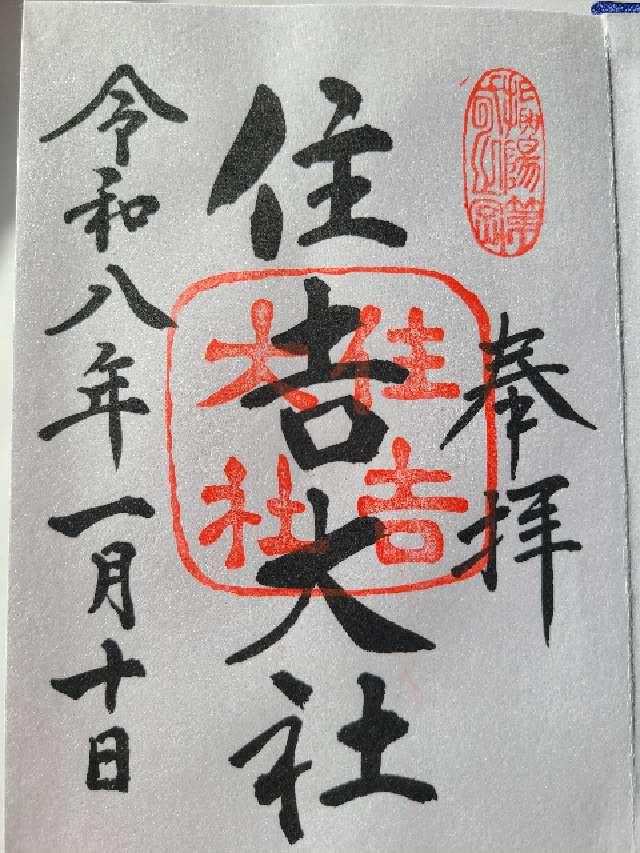 奉拝
住吉大社
住吉
大社
令和八年一月十日